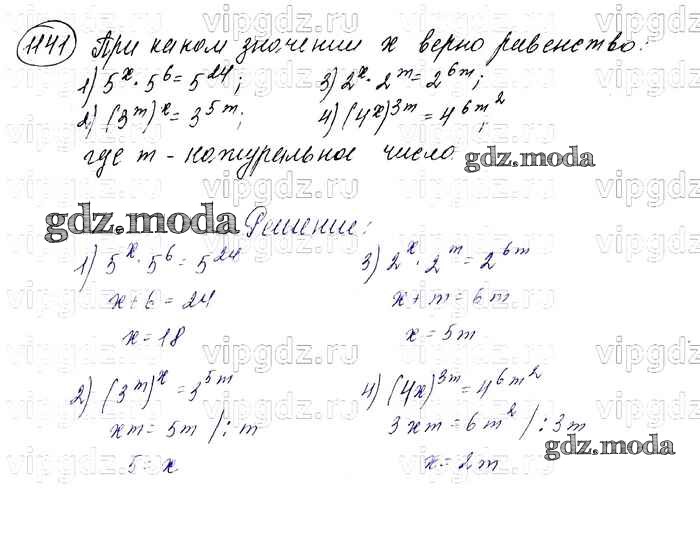 1141 При каком значении x верно равенство:
1) 5^x · 5^6 = 5^24; 3) 2^x · 2^m = 2^6m;
2) (3^m)^x = 3^5m; 4) (4x)^3m = 4^6m^2;
где m - натуральное число.
gdz.moda
gdz.moda
Решение:
1) 5^x · 5^6 = 5^24
x + 6 = 24
x = 18
2) (3^m)^x = 3^5m
xm = 5m /: m
5 = x
3) 2^x · 2^m = 2^6m
x + m = 6m
x = 5m
4) (4x)^3m = 4^6m^2
3xm = 6m^2 /: 3m
x = 2m
gdz.moda
vipgdz.ru